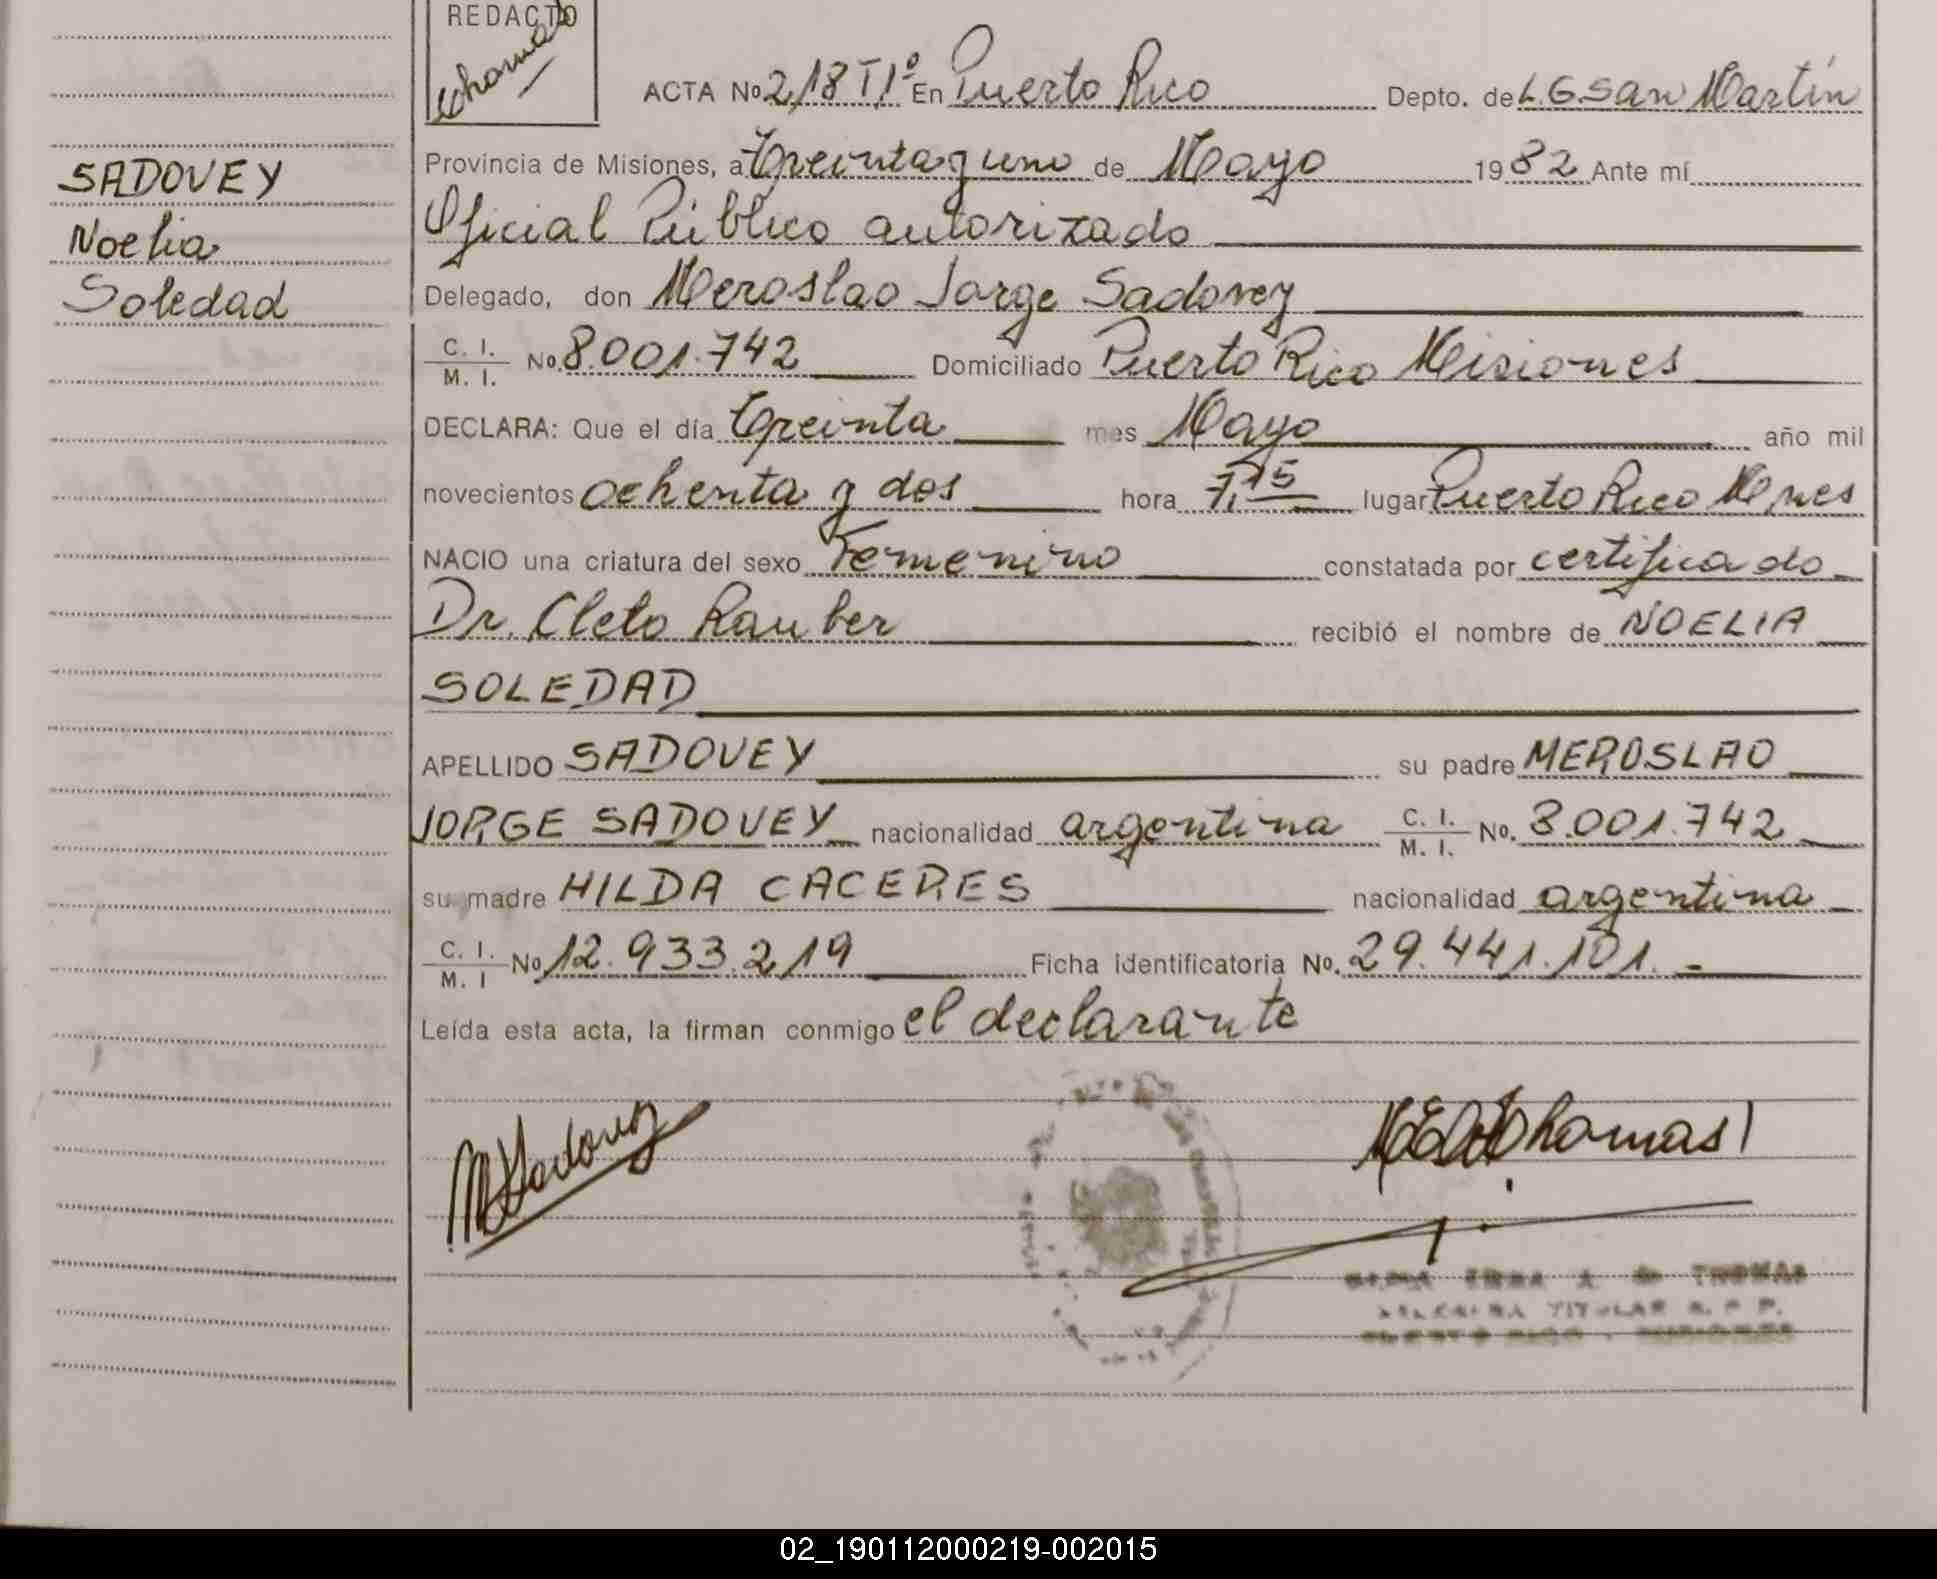 REDACTO
ACTA No 218 T1º En Puerto Rico Depto. de L.G.San Martín
Provincia de Misiones, a Treinta y uno de Mayo 1982 Ante mí
Oficial Público autorizado
Delegado, don Meroslao Jorge Sadovey
C. I.
M. I. No. 8.001.742 Domiciliado Puerto Rico Misiones
DECLARA: Que el día Treinta mes Mayo año mil
novecientos ochenta y dos hora 7,15 lugar Puerto Rico Mnes
NACIO una criatura del sexo Femenino constatada por certificado
Dr. Cleto Rauber recibió el nombre de NOELIA
SOLEDAD
APELLIDO SADOVEY su padre MEROSLAO
JORGE SADOVEY nacionalidad argentina C. I.
M. I. No. 8.001.742
su madre HILDA CACERES nacionalidad argentina
C. I.
M. I No 12.933.219 Ficha identificatoria No. 29.441.101.-
Leída esta acta, la firman conmigo el declarante
SADOVEY
Noelia
Soledad
MSadovey
Thomas
THOMAS
TITULAR R. P. P.
PUERTO RICO - MISIONES
02_190112000219-002015